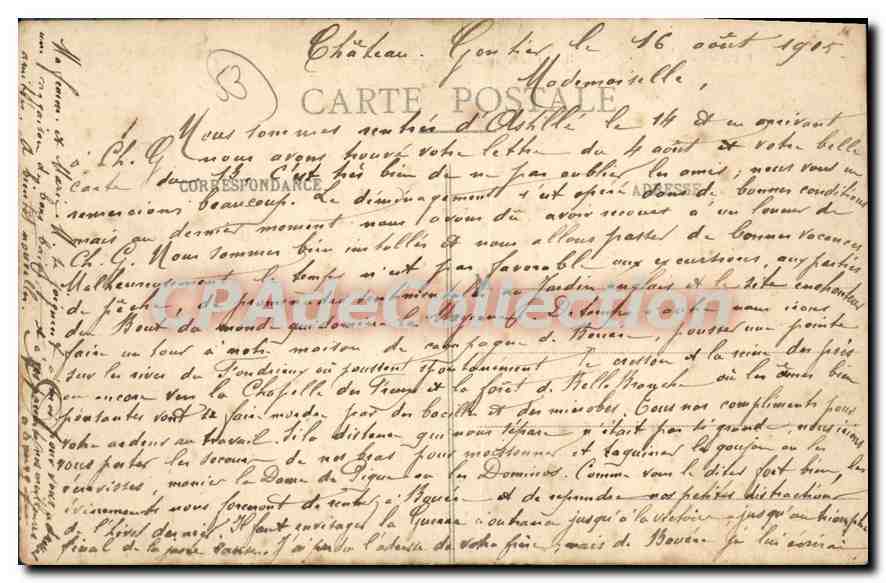 53
Château-Gontier, le 16 août 1915
Mademoiselle,
CARTE POSTALE
Nous sommes rentrés d'Astillé le 14 et en arrivant
à Ch. G. nous avons trouvé votre lettre du 4 août et votre belle
carte du 13. C'est très bien de ne pas oublier les amis, nous vous en
CORRESPONDANCE
ADRESSE
remercions beaucoup. Le déménagement s'est opéré dans de bonnes conditions
mais au dernier moment nous avons dû avoir recours à un loueur de
Ch. G. Nous sommes bien installés et nous allons passer de bonnes vacances
Malheureusement le temps n'est pas favorable aux excursions, aux parties
de pêche, de promenades sentimentales au jardin anglais et le site enchanteur
CPADeCollection
du Bout du monde qui domine la Mayenne. De temps à autre nous irons
faire un tour à notre maison de campagne de Bouère, pousser une pointe
sur les rives de où poussent spontanément le cresson et la reine des prés
ou encore vers la Chapelle des et la forêt de Belle Branche où les âmes bien
pensantes vont se faire mordre par des bacilles et des microbes. Tous nos compliments pour
votre ardeur au travail. Si la distance qui nous sépare n'était pas si grande, nous irions
vous porter le secours de nos bras pour moissonner et taquiner le goujon ou les
écrevisses, manier la Dame de Pique ou les Dominos. Comme vous le dites fort bien, les
évènements nous forceront de rentrer à Bouère et de reprendre nos petites distractions
de l'hiver dernier. Il faut envisager la Guerre à outrance jusqu'à la victoire, jusqu'au triomphe
final de la juste cause. l'adresse de votre frère, mais de Bouère je lui écrirai
Ma femme et Marie se joignent à moi pour vous
amitiés. A bientôt